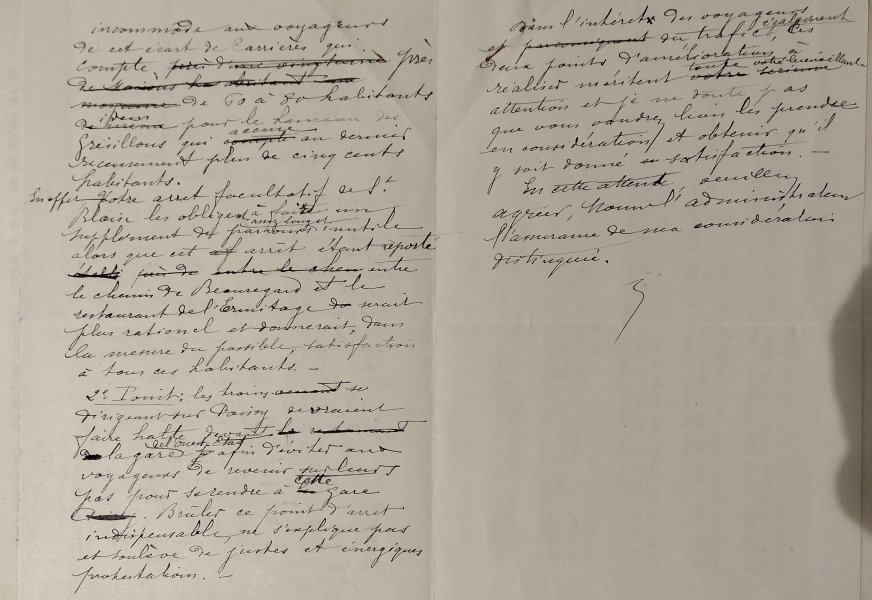 incommode aux voyageurs
de cet écart de Carrières qui
compte près d'une vingtaine près
de Maisons
de 60 à 80 habitants
et deux pour le hameau des
Grésillons qui accuse compte au dernier
recensement plus de cinq cents
habitants.
En effet Votre arret facultatif de St
Blaise les obligent à faire un
supplement de parcours assez longuer inutile
alors que cet arrêt étant reporté
près de entre le chem entre
le chemin de Beauregard et le
restaurant de l'Ermitage serait
plus rationel et donnerait, dans
la mesure du possible, satisfaction
à tous ces habitants. –
2e Point: les trains venant se
dirigeant sur Poissy devraient
faire halte devant le restaurant
la gare de l'Ouest Etat afin d'éviter aux
voyageurs de revenir sur leurs
pas pour se rendre à cette gare
. Brûler ce point d'arret
indispensable, ne s'explique pas
et soulève de justes et énergiques
protestations. –
Dans l'intéret des voyageurs
et par conséquent également du trafic, ces
deux points d'améliorations à
réaliser méritent votre sérieuse toute votre bienveillante
attention et je ne doute pas
que vous voudrez bien les prendre
en considération et obtenir qu'il
y soit donné satisfaction. –
En cette attente veuillez
agréer, Monsr l'administrateur
l'assurance de ma considération
distinguée.